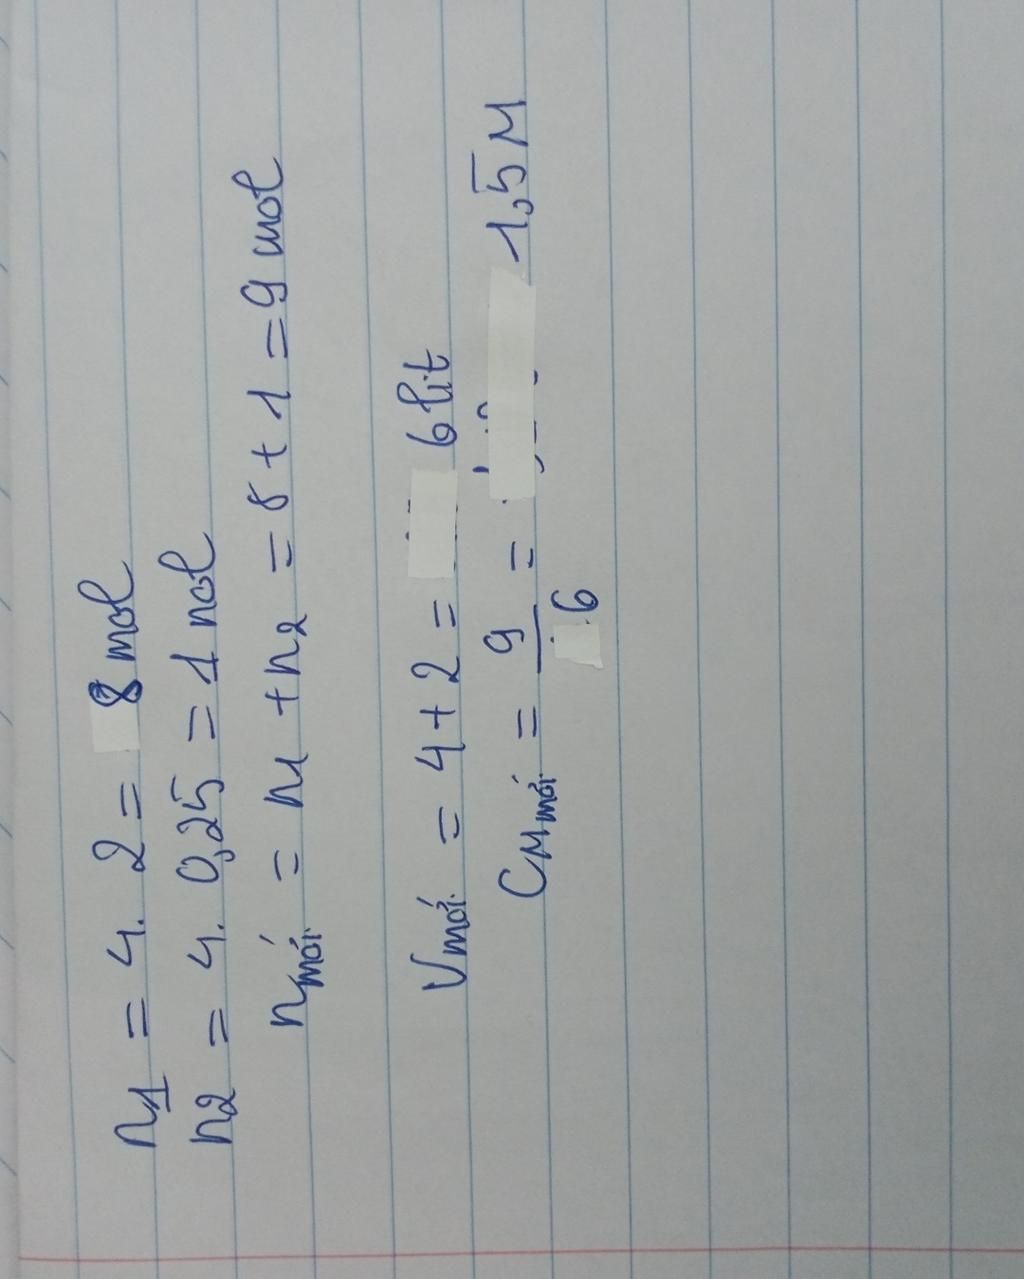 n1 = 4. 2 = 8 mol
n2 = 4. 0,25 = 1 mol
nmới = n1 + n2 = 8 + 1 = 9 mol
Vmới = 4 + 2 = 6 lit
CMmới = 9/6 = 1,5 M